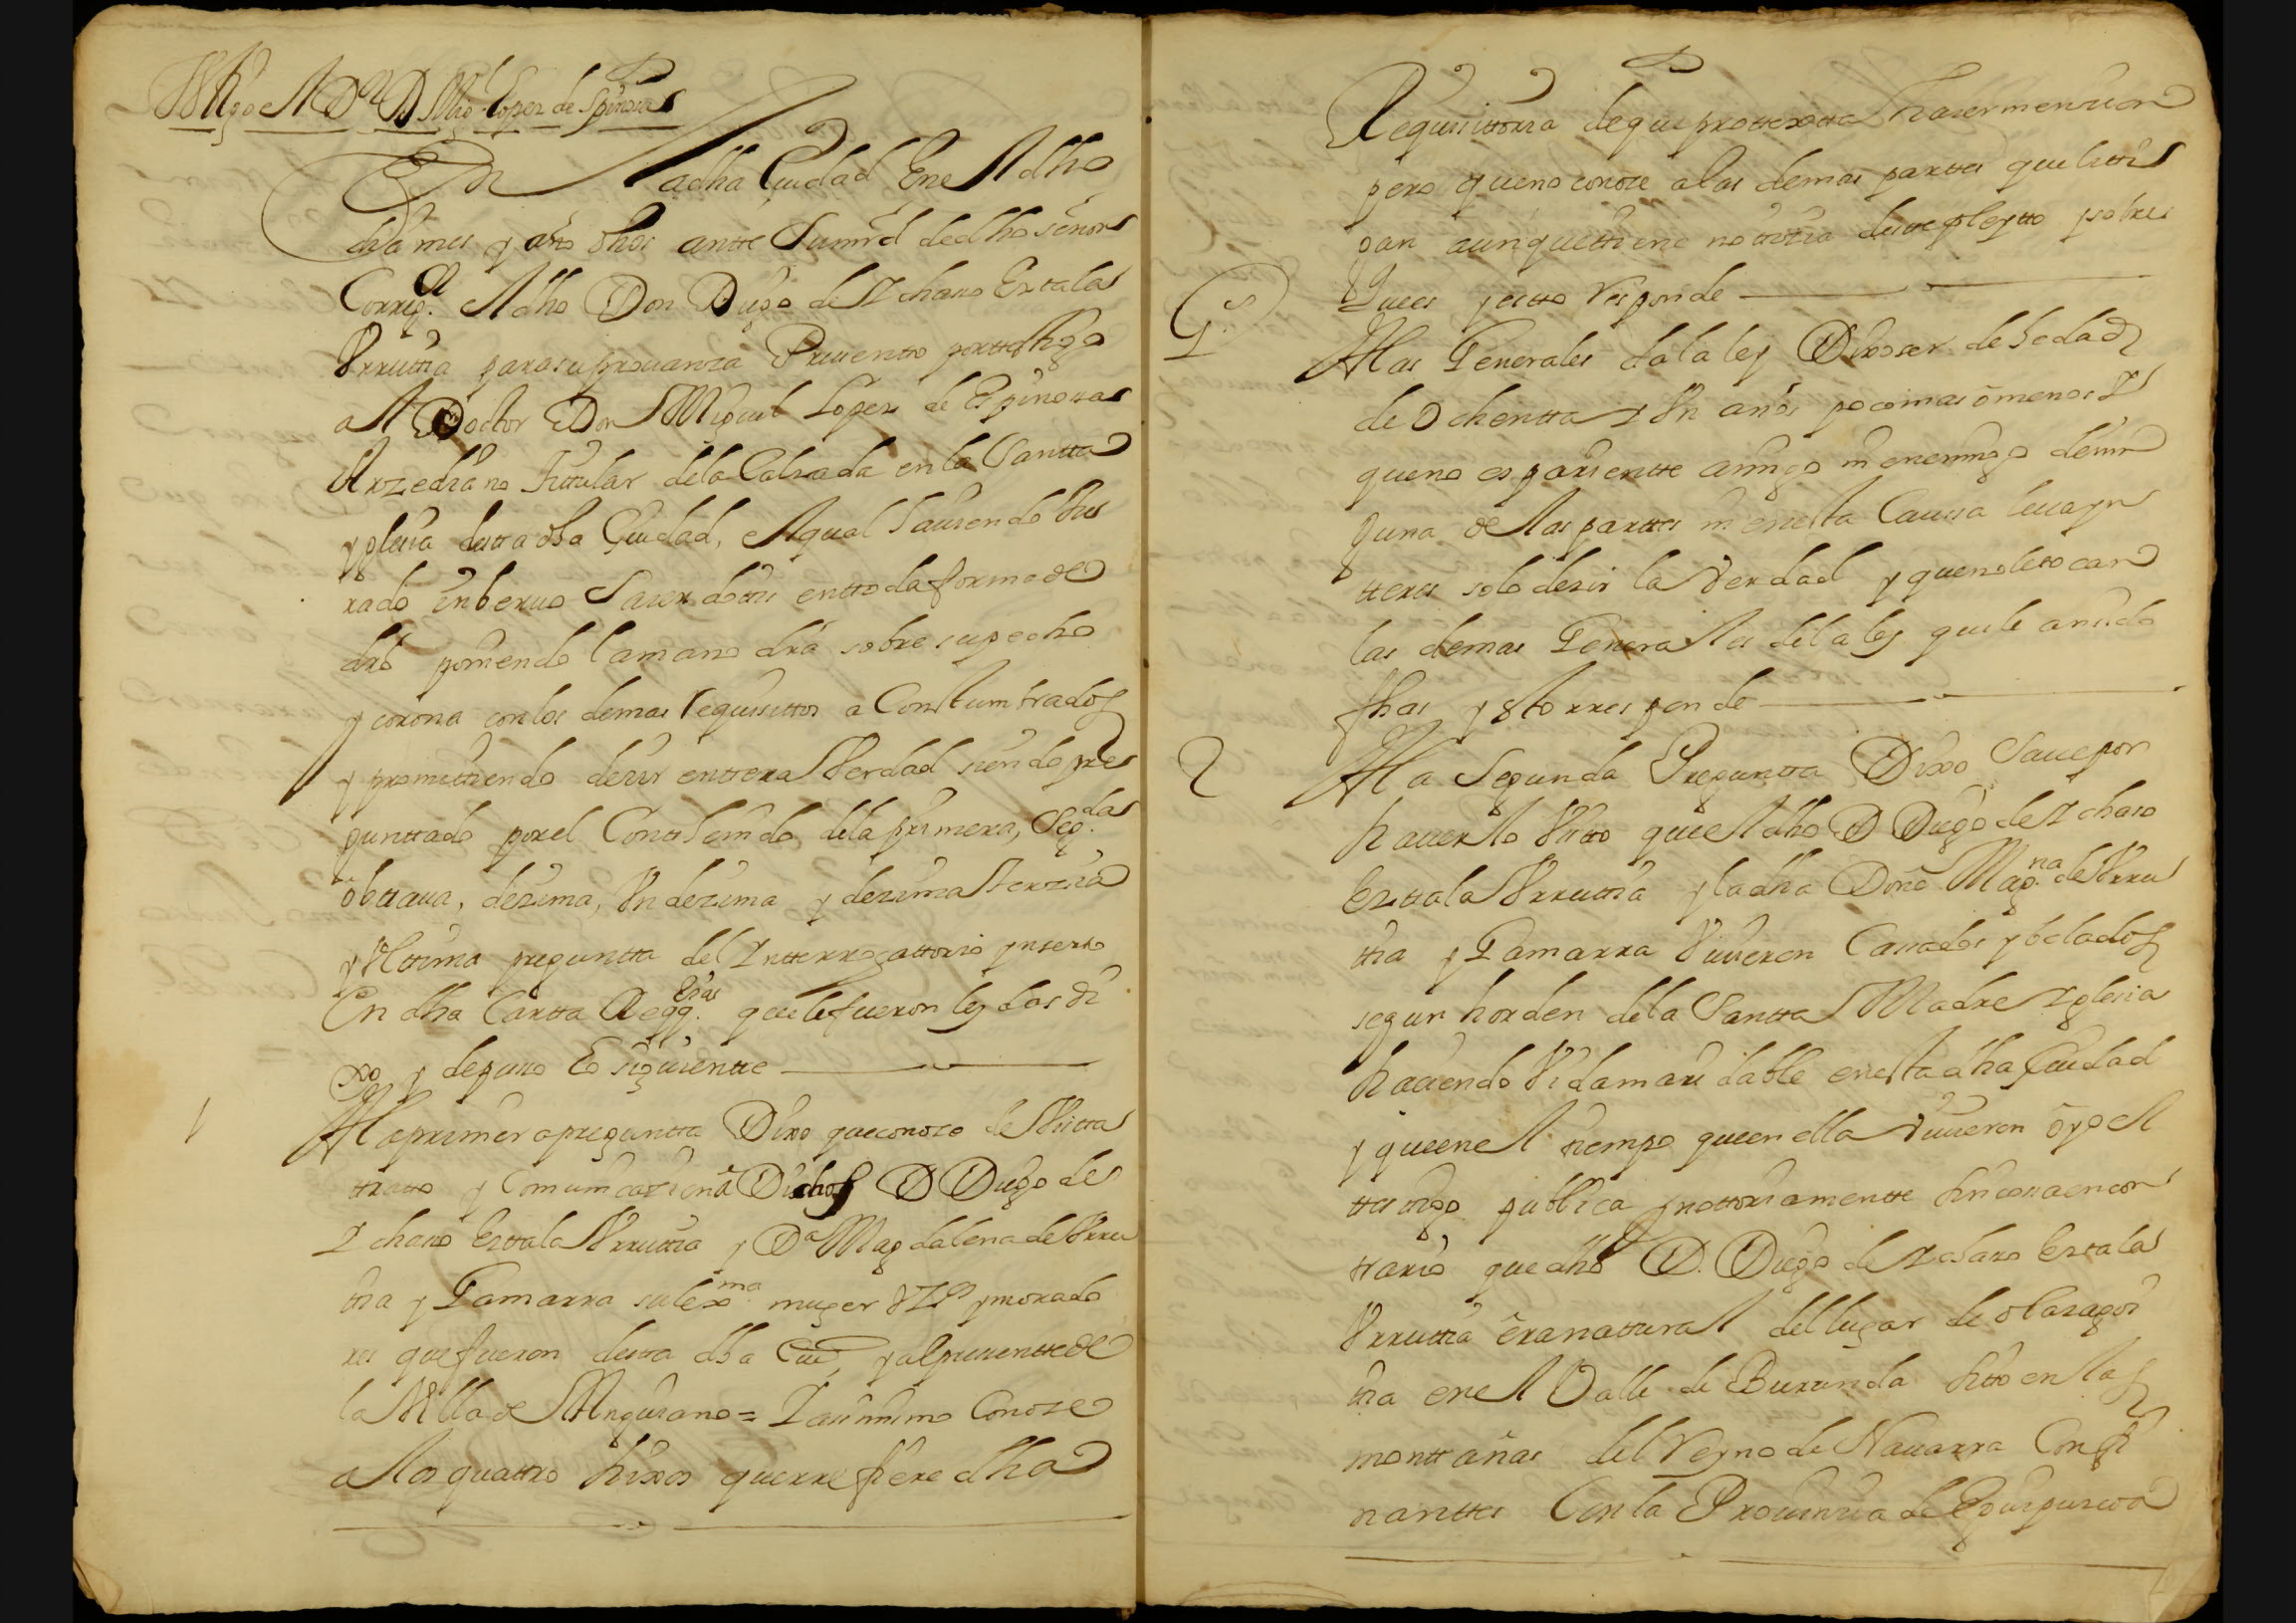 Thgo el Dor D Migl Lopez de Spinosa
En la dha Ciudad En el dho
dia mes y año dhos antte Su mrd de dho señor
Corregor el dho Don Diego de Ychaso Eztala
Vrruttia para su provanza Presentto por ttesttigo
al Doctor Don Miguel Lopez de Espinossa
Arzediano Titular de la Calzada en la Santta
yglesia destta dha Ciudad, el qual haviendo Ju
rado in bervo Sacerdottis en ttoda forma de
dro poniendo la mano dra sobre su pecho
y corona con los demas requissittos aConstumbrados
y promettiendo dezir enttera Verdad siendo pre
gunttado por el Conttenido de la primera, Segda
obttava, dezima, Undezima y dezima terzia
y Ultima pregunta del Ynterrogattorio ynserto
En dha Cartta Reqqrias que le fueron leydas di
xo y depuso Lo siguientte
1 A la primera preguntta Dixo que conoze de Vistta
tratto y Comunicazion a Dichos D Diego de
Ychaso Eztala Vrruttia y Da Magdalena de Vrru
ttia y Gamarra su lexma muger Vzs y morado
res que fueron destta dha Ciud y al presentte de
la Villa de Anguiano = Y assimismo Conoze
a los quattro hixos que rrefiere dha
Requisittoria de que prottextta hazer menzion
pero que no conoze a las demas parttes que littis
gan aunque ttiene nottizia deste pleytto y sobre
Que es y estto Responde
Gs A las Generales de la ley Dixo ser de hedad
de Ochentta y Un años poco mas o menos y
que no es parientte amigo ni enemigo de nin
guna de las parttes ni en esta Caussa lleva yn
tteres solo dezir la Verdad y que no le tocan
las demas Generales de la ley que le an sido
fhas y esto rresponde
2 A la Segunda Preguntta Dixo Save por
haverlo Vistto que el dho D Diego de Ychaso
Eztala Vrruttia y la dha Doña Magna de Vrru
ttia y Gamarra Vivieron Cassados y belados
segun horden de la Santta Madre Yglesia
haciendo Vida maridable en esta dha Ciudad
y que en el tiempo que en ella vivieron oyo el
ttesttigo publica y nottoriamentte sin cossa en con
trario que dho D. Diego de Ychaso Eztala
Vrruttia era nattural del lugar de olazagoi
ttia en el Valle de Burunda sitto en las
monttañas del Reyno de Navarra Confi
nanttes Con la Provinzia de Eguipuscoa